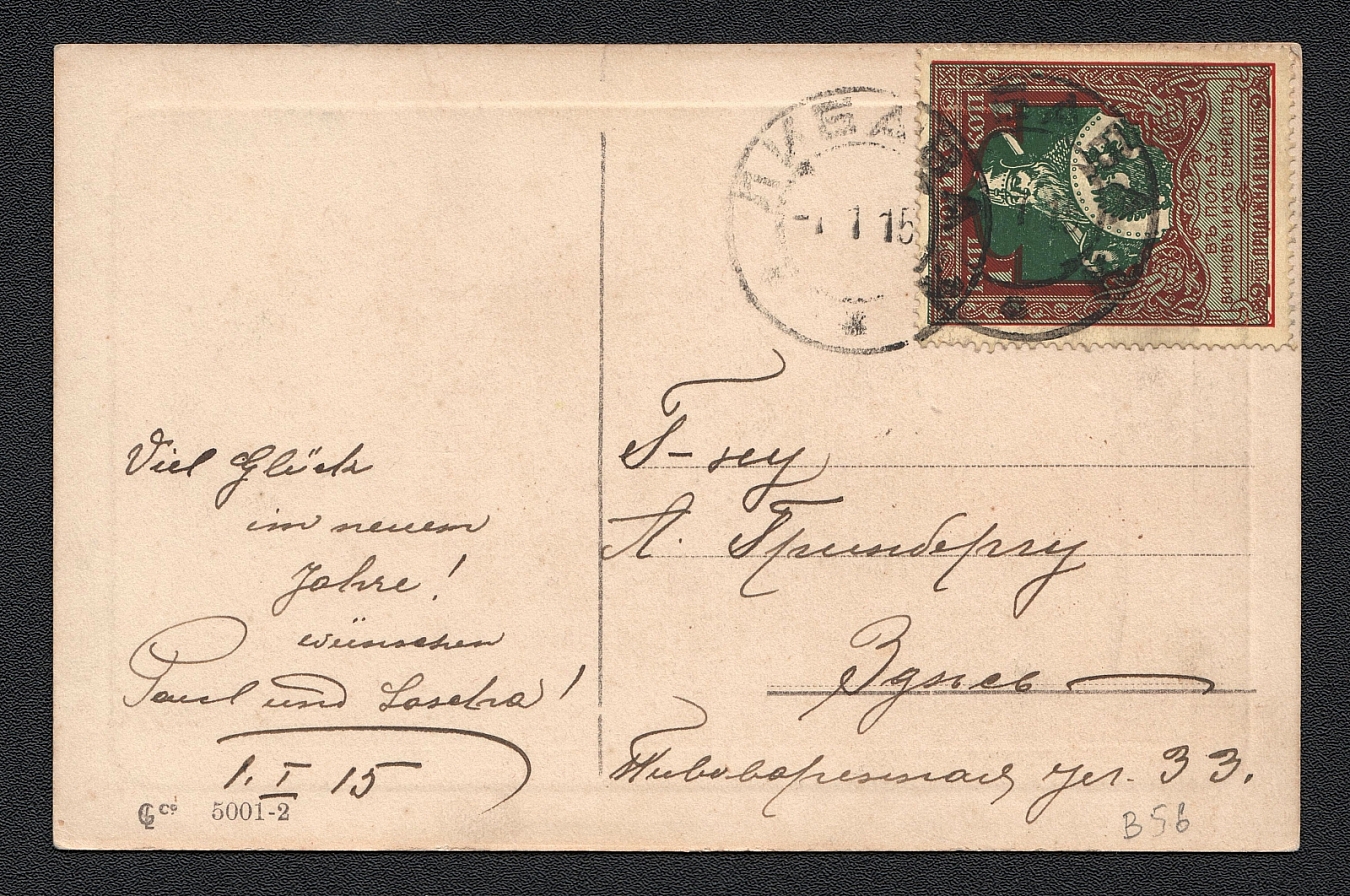 ЛИБАВА
-1 1 15
ВЪ ПОЛЬЗУ
ВОИНОВЪ И ИХЪ СЕМЕЙСТВЪ
Viel Glück
im neuem
Jahre!
wünschen
Paul und Sascha!
1. I 15
5001-2
Г-ну
А. Гринбергу
Здѣсь
Пивоваренная ул. 33.
B 56